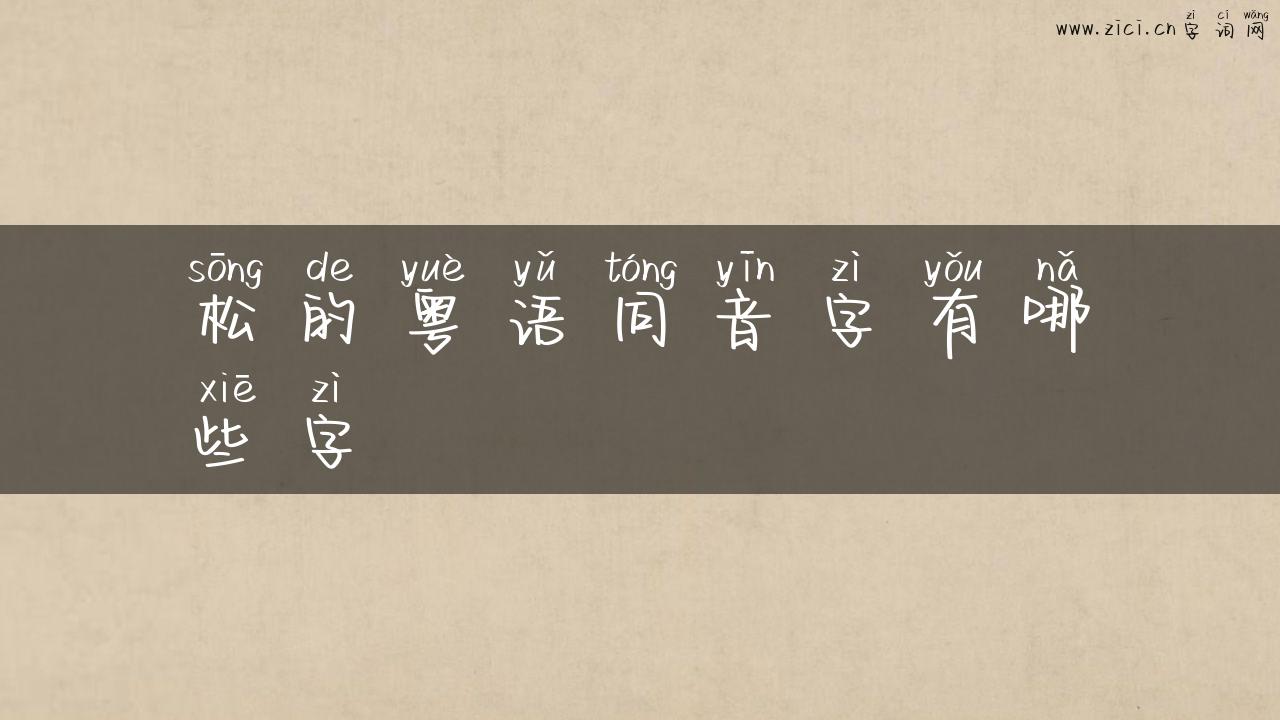 zì cí wǎng
www.zici.cn 字词网
sōng de yuè yǔ tóng yīn zì yǒu nǎ
松的粤语同音字有哪
xiē zì
些字